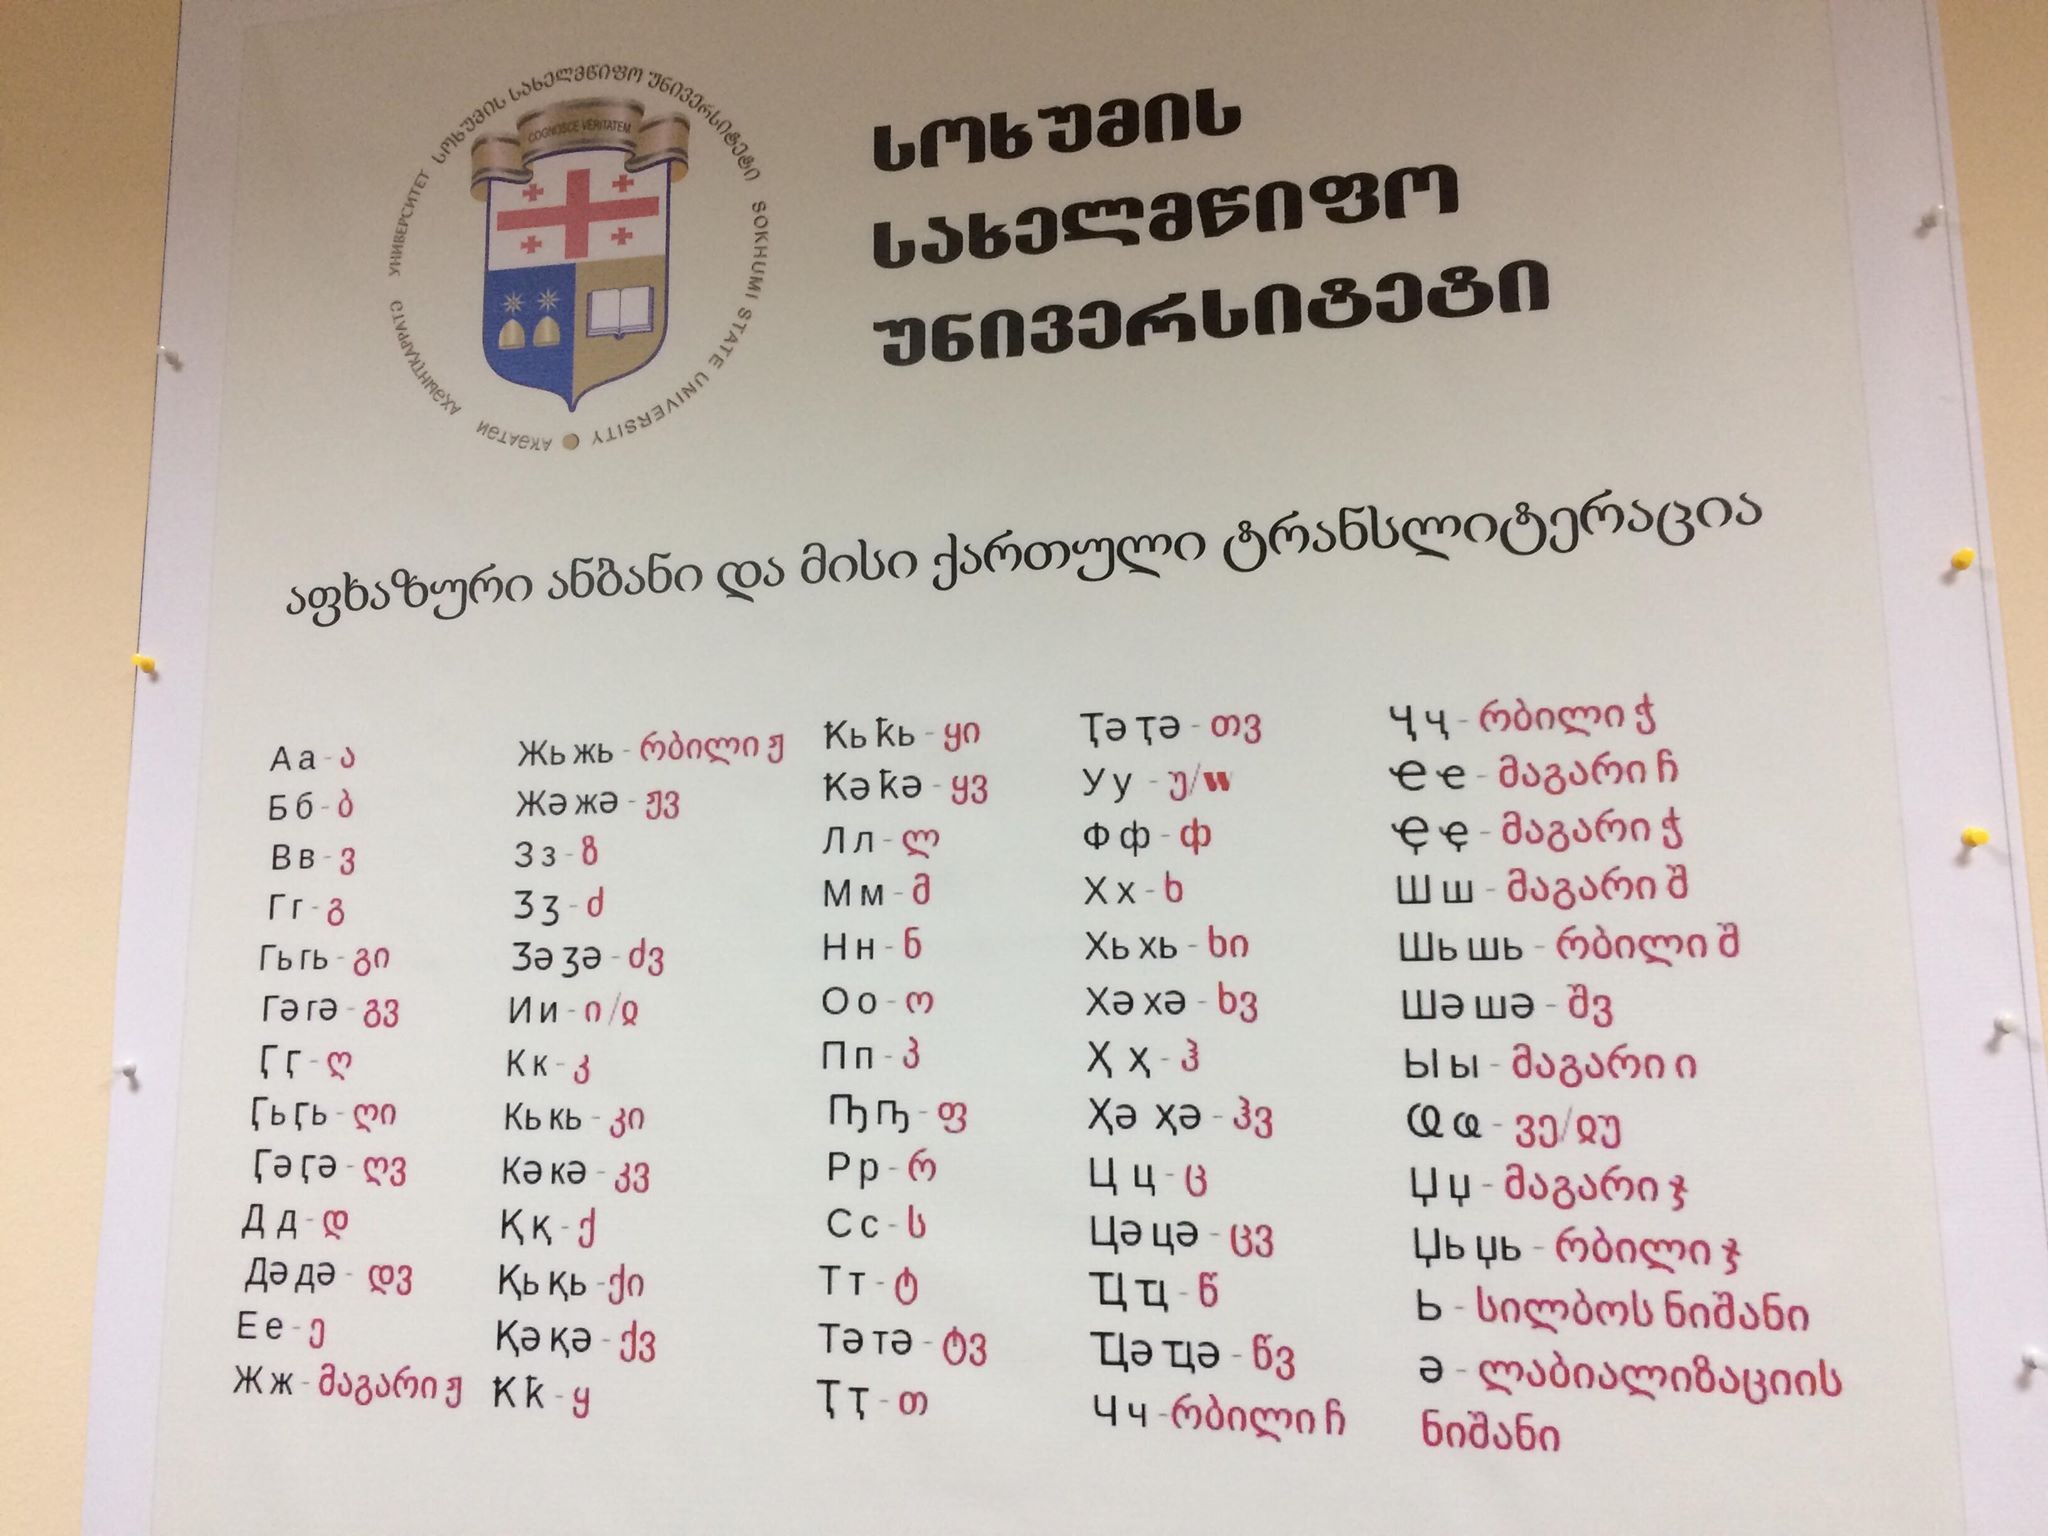 სოხუმის სახელმწიფო უნივერსიტეტი
SOKHUMI STATE UNIVERSITY
COGNOSCE VERITATEM
სოხუმის
სახელმწიფო
უნივერსიტეტი
აფხაზური ანბანი და მისი ქართული ტრანსლიტერაცია
А а - ა
Б б - ბ
В в - ვ
Г г - გ
Гь гь - გი
Гә гә - გვ
Ӷ ӷ - ღ
Ӷь ӷь - ღი
Ӷә ӷә - ღვ
Д д - დ
Дә дә - დვ
Е е - ე
Ж ж - მაგარი ჟ
Жь жь - რბილი ჟ
Жә жә - ჟვ
З з - ზ
Ӡ ӡ - ძ
Ӡә ӡә - ძვ
И и - ი/ჲ
К к - კ
Кь кь - კი
Кә кә - კვ
Қ қ - ქ
Қь қь - ქი
Қә қә - ქვ
Ҟ ҟ - ყ
Ҟь ҟь - ყი
Ҟә ҟә - ყვ
Л л - ლ
М м - მ
Н н - ნ
О о - ო
П п - პ
Ҧ ҧ - ფ
Р р - რ
С с - ს
Т т - ტ
Тә тә - ტვ
Ҭ ҭ - თ
Ҭә ҭә - თვ
У у - უ/w
Ф ф - ф
Х х - ხ
Хь хь - ხი
Хә хә - ხვ
Ҳ ҳ - ჰ
Ҳә ҳә - ჰვ
Ц ц - ც
Цә цә - ცვ
Ҵ ҵ - წ
Ҵә ҵә - წვ
Ч ч - რბილი ჩ
Ҷ ҷ - რბილი ჭ
Ҽ ҽ - მაგარი ჩ
Ҿ ҿ - მაგარი ჭ
Ш ш - მაგარი შ
Шь шь - რბილი შ
Шә шә - შვ
Ы ы - მაგარი ი
Ҩ ҩ - ვე/ჲუ
Џ џ - მაგარი ჯ
Џь џь - რბილი ჯ
Ь - სილბოს ნიშანი
ә - ლაბიალიზაციის
ნიშანი